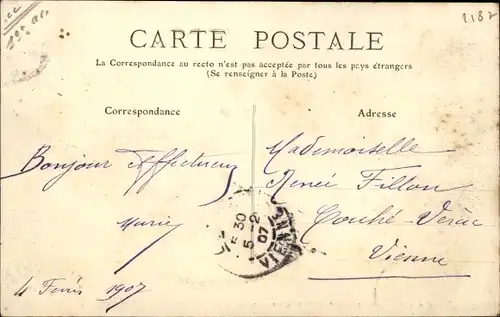 2187
CARTE POSTALE
La Correspondance au recto n'est pas acceptée par tous les pays étrangers
(Se renseigner à la Poste)
Correspondance
Adresse
Bonjour Affectueux
Marie
4 1907
Mademoiselle
Renée Fillon
Couhé-Vérac
Vienne
5 30
5 -2
07
VIENNE